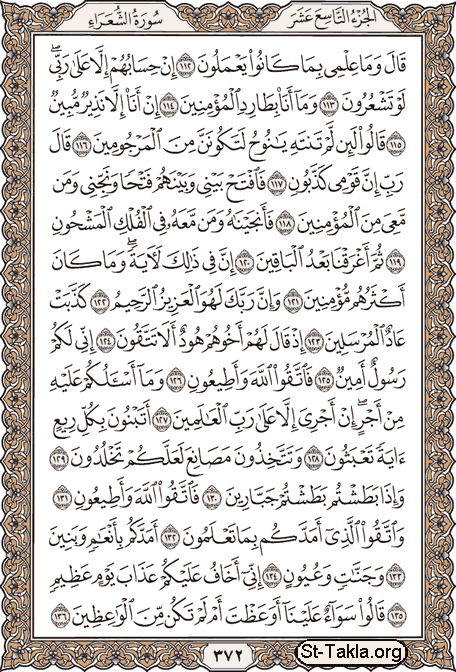 الجزء التاسع عشر
سورة الشعراء
قَالَ وَمَا عِلْمِى بِمَا كَانُوا۟ يَعْمَلُونَ ١١٢ إِنْ حِسَابُهُمْ إِلَّا عَلَىٰ رَبِّى ۖ
لَوْ تَشْعُرُونَ ١١٣ وَمَآ أَنَا۠ بِطَارِدِ ٱلْمُؤْمِنِينَ ١١٤ إِنْ أَنَا۠ إِلَّا نَذِيرٌ مُّبِينٌ
١١٥ قَالُوا۟ لَئِن لَّمْ تَنتَهِ يَـٰنُوحُ لَتَكُونَنَّ مِنَ ٱلْمَرْجُومِينَ ١١٦ قَالَ
رَبِّ إِنَّ قَوْمِى كَذَّبُونِ ١١٧ فَٱفْتَحْ بَيْنِى وَبَيْنَهُمْ فَتْحًا وَنَجِّنِى وَمَن
مَّعِىَ مِنَ ٱلْمُؤْمِنِينَ ١١٨ فَأَنجَيْنَـٰهُ وَمَن مَّعَهُۥ فِى ٱلْفُلْكِ ٱلْمَشْحُونِ
١١٩ ثُمَّ أَغْرَقْنَا بَعْدُ ٱلْبَاقِينَ ١٢٠ إِنَّ فِى ذَٰلِكَ لَـَٔايَةً ۖ وَمَا كَانَ
أَكْثَرُهُم مُّؤْمِنِينَ ١٢١ وَإِنَّ رَبَّكَ لَهُوَ ٱلْعَزِيزُ ٱلرَّحِيمُ ١٢٢ كَذَّبَتْ
عَادٌ ٱلْمُرْسَلِينَ ١٢٣ إِذْ قَالَ لَهُمْ أَخُوهُمْ هُودٌ أَلَا تَتَّقُونَ ١٢٤ إِنِّى لَكُمْ
رَسُولٌ أَمِينٌ ١٢٥ فَٱتَّقُوا۟ ٱللَّهَ وَأَطِيعُونِ ١٢٦ وَمَآ أَسْـَٔلُكُمْ عَلَيْهِ
مِنْ أَجْرٍ ۖ إِنْ أَجْرِىَ إِلَّا عَلَىٰ رَبِّ ٱلْعَـٰلَمِينَ ١٢٧ أَتَبْنُونَ بِكُلِّ رِيعٍ
ءَايَةً تَعْبَثُونَ ١٢٨ وَتَتَّخِذُونَ مَصَانِعَ لَعَلَّكُمْ تَخْلُدُونَ ١٢٩
وَإِذَا بَطَشْتُم بَطَشْتُمْ جَبَّارِينَ ١٣٠ فَٱتَّقُوا۟ ٱللَّهَ وَأَطِيعُونِ ١٣١
وَٱتَّقُوا۟ ٱلَّذِىٓ أَمَدَّكُم بِمَا تَعْلَمُونَ ١٣٢ أَمَدَّكُم بِأَنْعَـٰمٍ وَبَنِينَ
١٣٣ وَجَنَّـٰتٍ وَعُيُونٍ ١٣٤ إِنِّىٓ أَخَافُ عَلَيْكُمْ عَذَابَ يَوْمٍ عَظِيمٍ
١٣٥ قَالُوا۟ سَوَآءٌ عَلَيْنَآ أَوَعَظْتَ أَمْ لَمْ تَكُن مِّنَ ٱلْوَٰعِظِينَ ١٣٦
٣٧٢
St-Takla.org